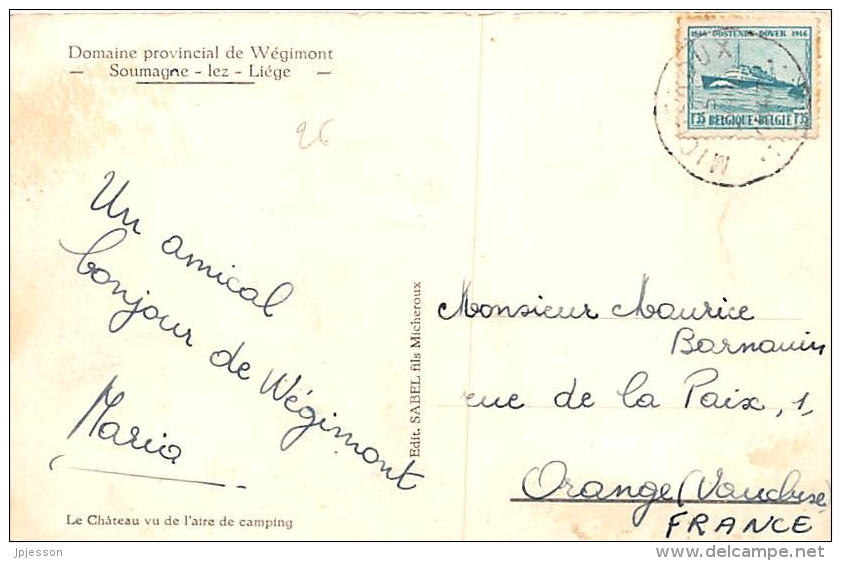 Domaine provincial de Wégimont
Soumagne - lez - Liége
26
Un amical
bonjour de Wégimont
Maria
Le Château vu de l'aire de camping
Edit. SABEL fils Micheroux
1846 OOSTENDE-DOVER 1946
1F35 BELGIQUE-BELGIË 1F35
Monsieur Maurice
Barnauin
rue de la Paix, 1,
Orange (Vaucluse)
FRANCE
jpjesson
www.delcampe.net